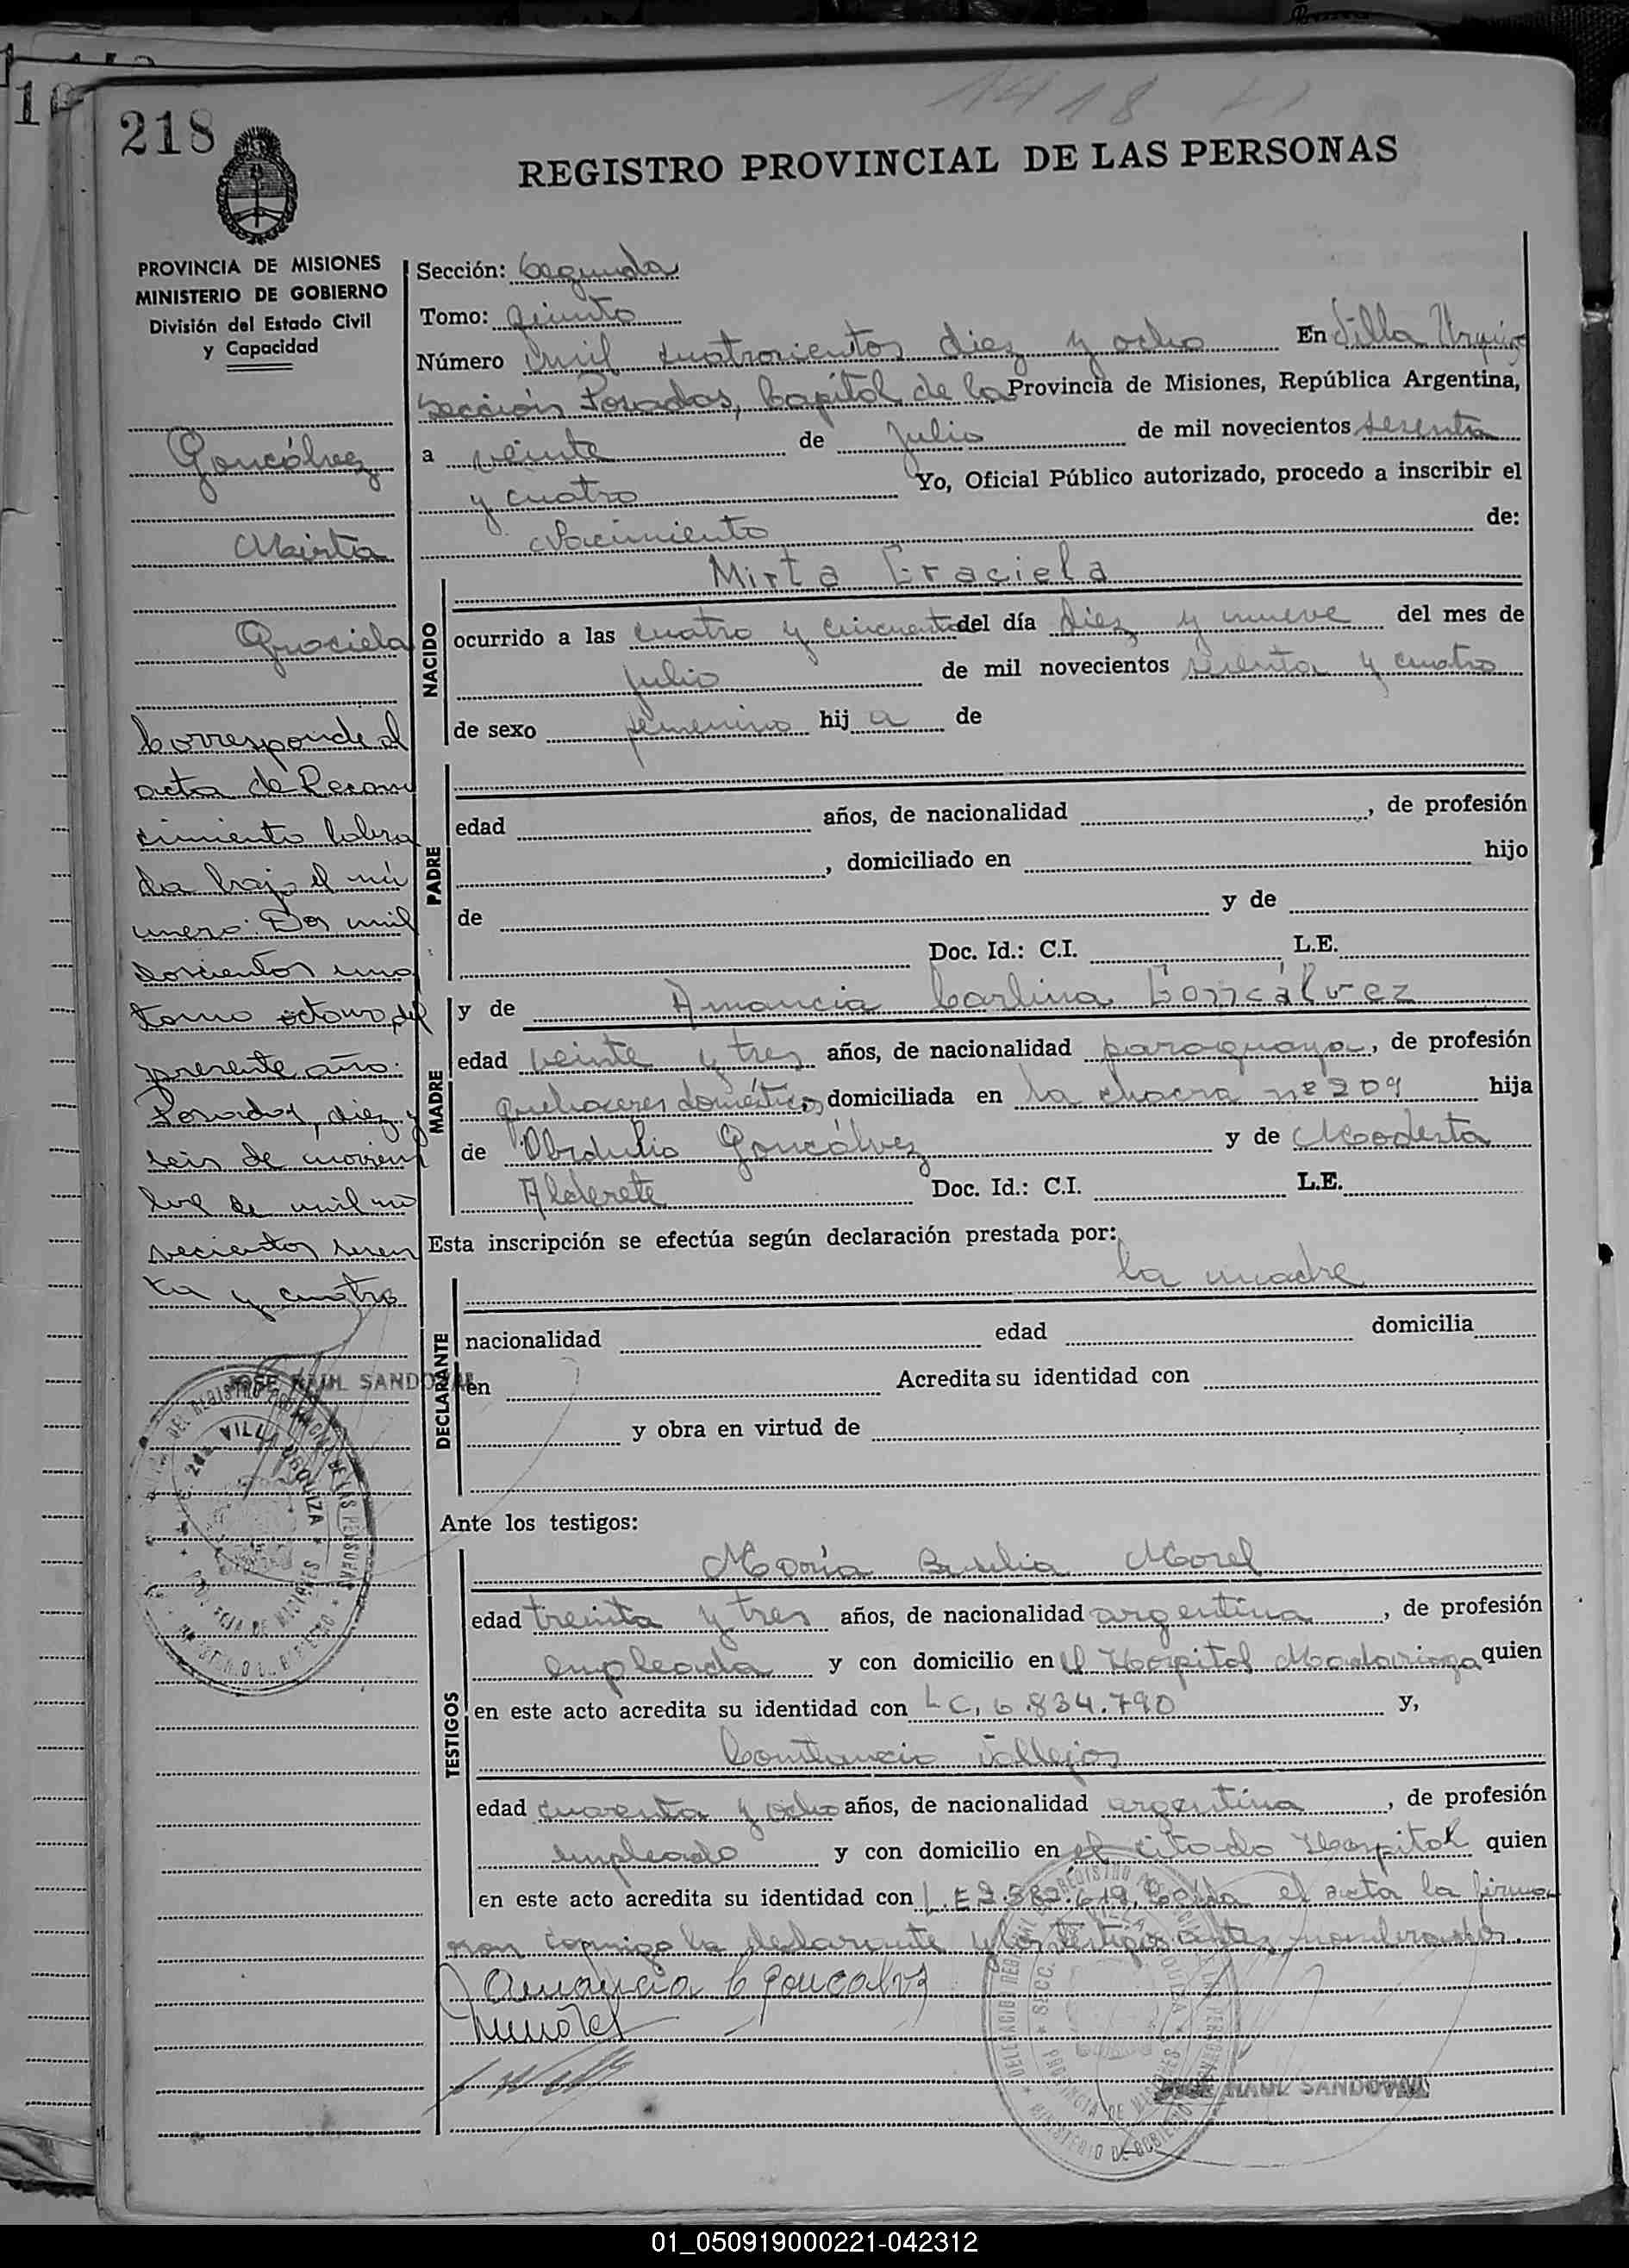 1418
218
REGISTRO PROVINCIAL DE LAS PERSONAS
PROVINCIA DE MISIONES
MINISTERIO DE GOBIERNO
División del Estado Civil
y Capacidad
Goncálvez
Mirta
Graciela
Corresponde al
acta de Recono
cimiento labra
da bajo el nú
mero: Dos mil
doscientos uno
tomo octavo del
presente año.
Posadas, diez y
seis de noviem
bre de mil no
vecientos sesen
ta y cuatro
JOSE RAUL SANDOVAL
Sección: Segunda
Tomo: Quinto
Número mil cuatrocientos diez y ocho En Villa Urquiza
Sección Posadas, Capital de la Provincia de Misiones, República Argentina,
a veinte de Julio de mil novecientos sesenta
y cuatro Yo, Oficial Público autorizado, procedo a inscribir el
Nacimiento de:
NACIDO
Mirta Graciela
ocurrido a las cuatro y cincuenta del día diez y nueve del mes de
julio de mil novecientos sesenta y cuatro
de sexo femenino hij a de
PADRE
edad años, de nacionalidad , de profesión
, domiciliado en hijo
de y de
Doc. Id.: C.I. L.E.
MADRE
y de Amancia Carlina Goncálvez
edad veinte y tres años, de nacionalidad paraguaya, de profesión
quehaceres domésticos domiciliada en la chacra nº 209 hija
de Obdulio Goncálvez y de Modesta
Alderete Doc. Id.: C.I. L.E.
Esta inscripción se efectúa según declaración prestada por:
la madre
DECLARANTE
nacionalidad edad domicilia
en Acredita su identidad con
y obra en virtud de
Ante los testigos:
TESTIGOS
María Morel
edad treinta y tres años, de nacionalidad argentina, de profesión
empleada y con domicilio en el Hospital Madariaga quien
en este acto acredita su identidad con LC. 6.834.790 y,
Constancio Vallejos
edad cuarenta y ocho años, de nacionalidad argentina, de profesión
empleado y con domicilio en el citado Hospital quien
en este acto acredita su identidad con L.E 2.582.619, Leída el acta la firma
ron conmigo la declarante y los testigos antes nombrados.
Amancia C Goncalvez
JOSE RAUL SANDOVAL
01_050919000221-042312